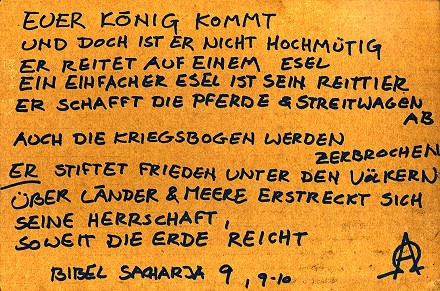 EUER KÖNIG KOMMT
UND DOCH IST ER NICHT HOCHMÜTIG
ER REITET AUF EINEM ESEL
EIN EINFACHER ESEL IST SEIN REITTIER
ER SCHAFFT DIE PFERDE & STREITWAGEN
AB
AUCH DIE KRIEGSBOGEN WERDEN
ZERBROCHEN
ER STIFTET FRIEDEN UNTER DEN VÖLKERN
ÜBER LÄNDER & MEERE ERSTRECKT SICH
SEINE HERRSCHAFT,
SOWEIT DIE ERDE REICHT
BIBEL SACHARJA 9, 9-10